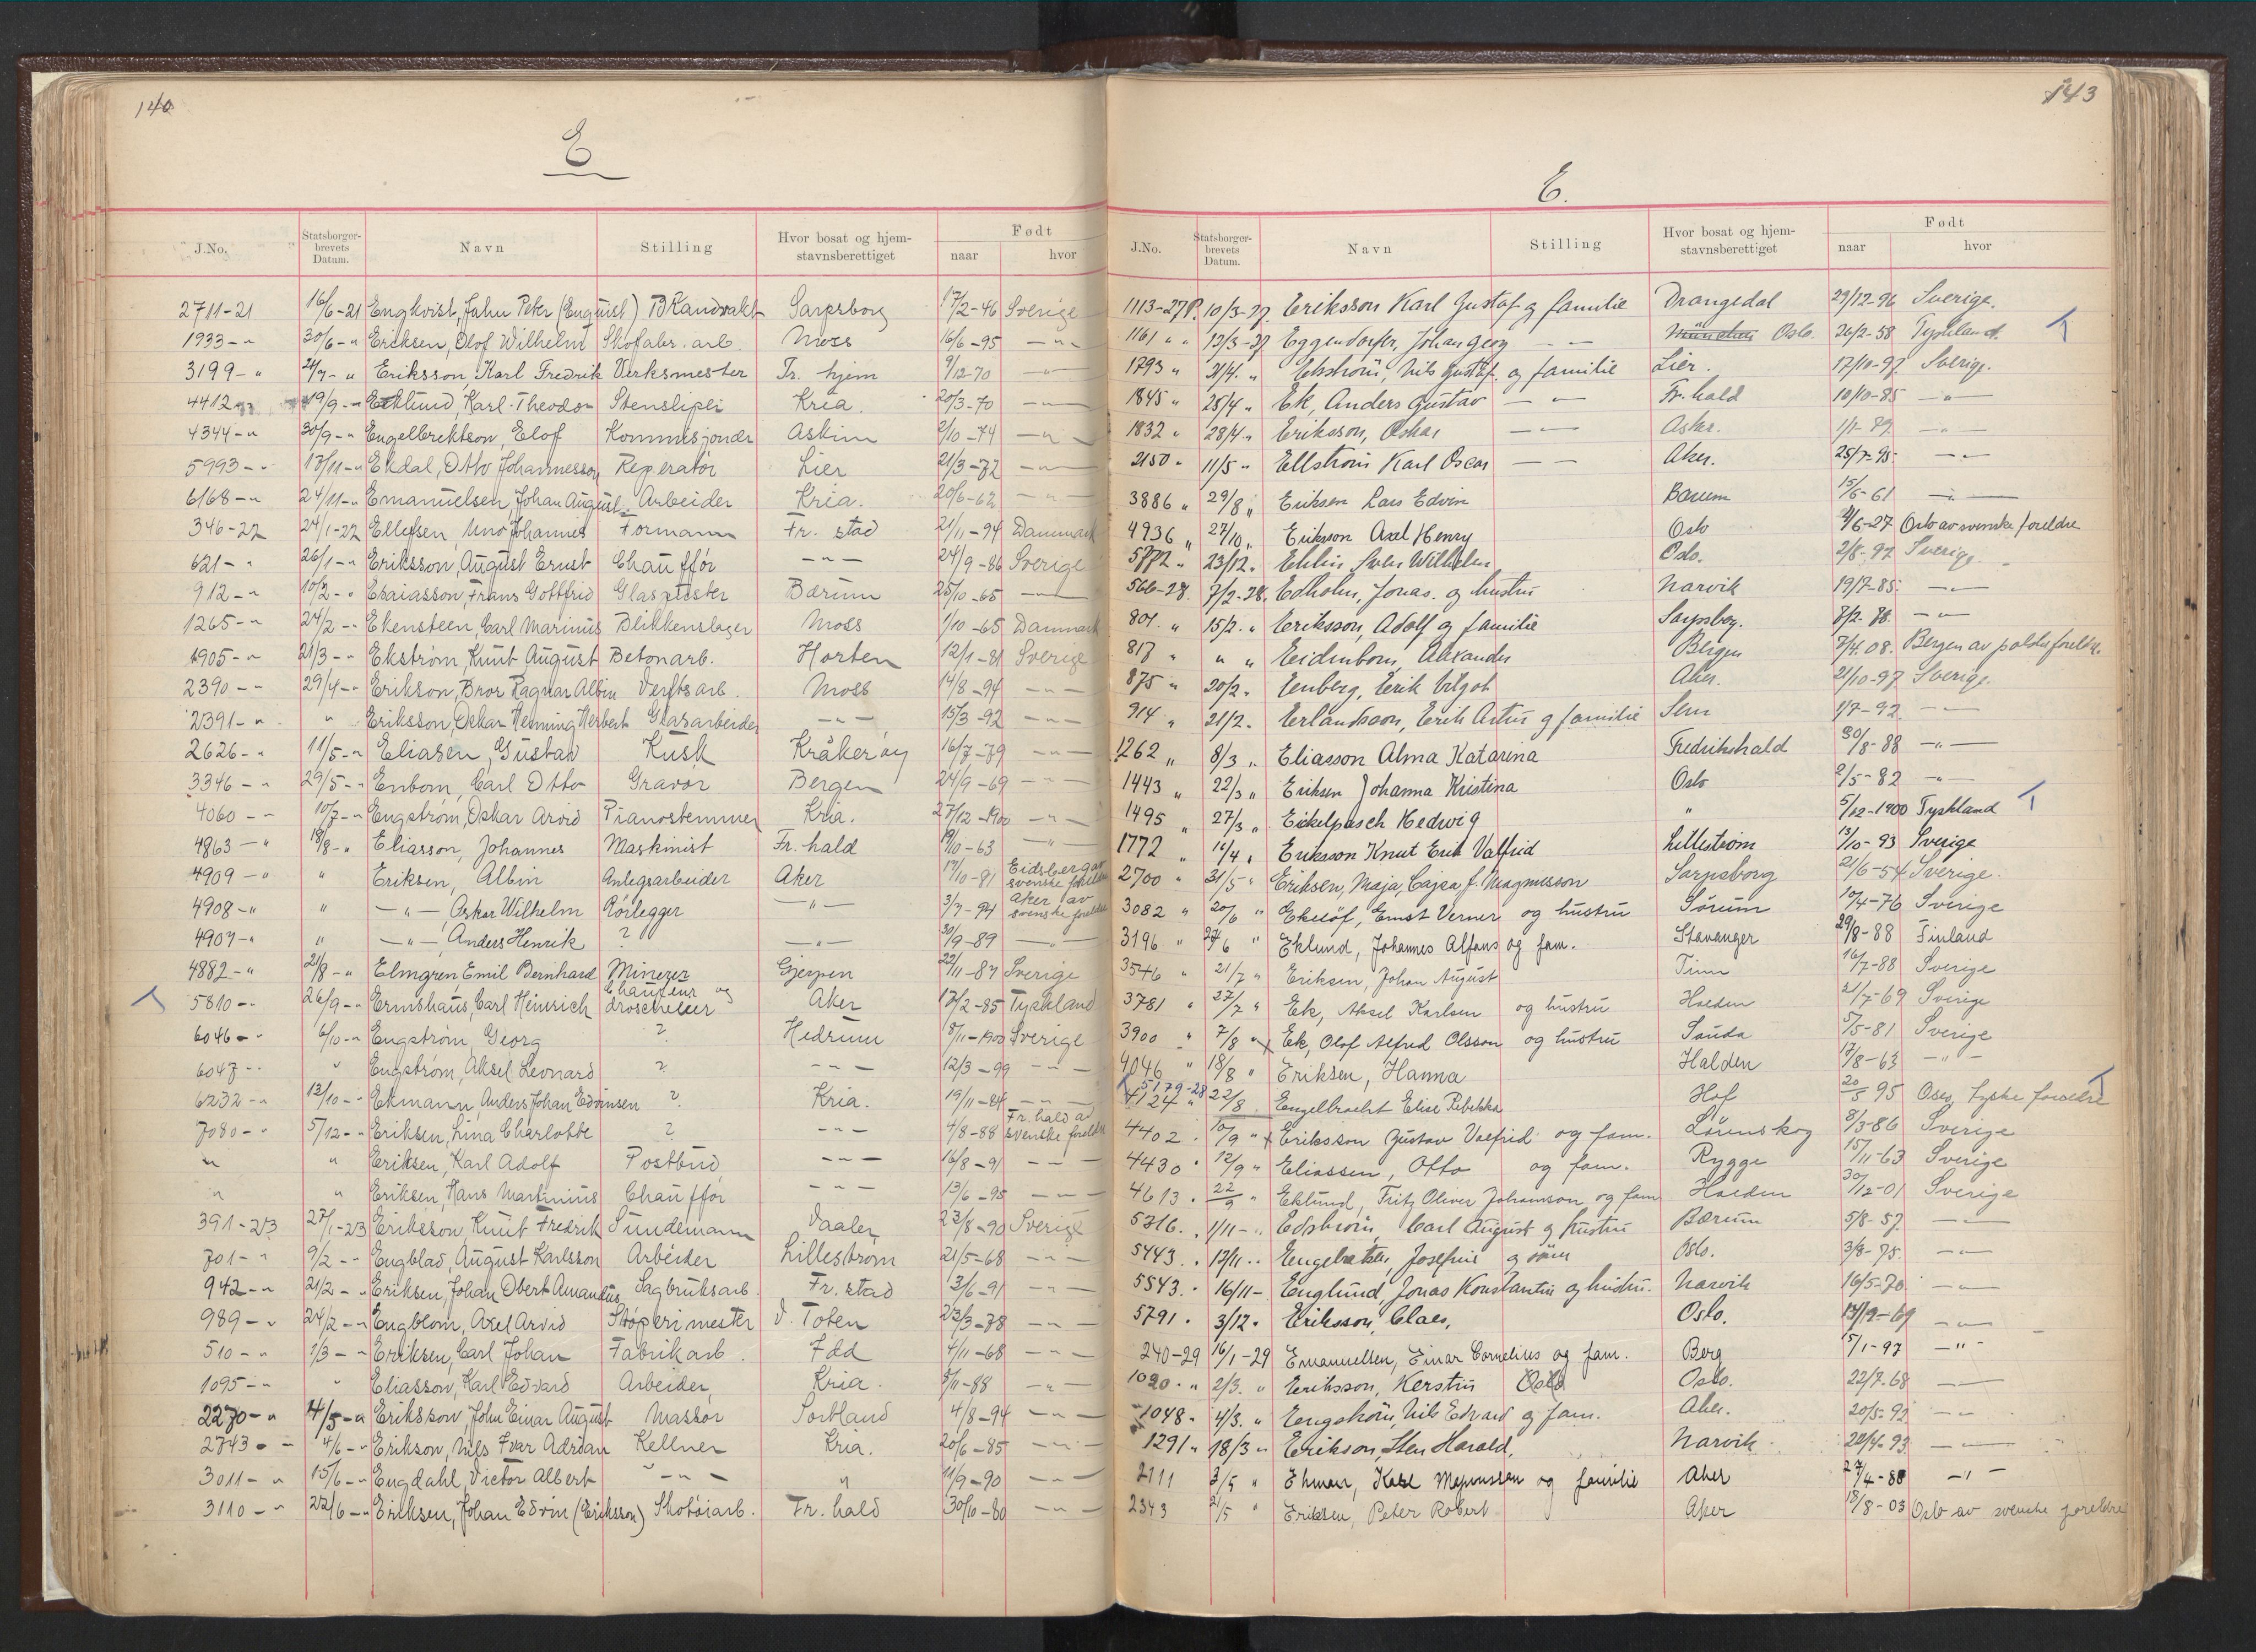 140
E
J.No. Statsborger-brevets Datum. Navn Stilling Hvor bosat og hjem-stavnsberettiget Født naar hvor
2711-21 16/6-21 Engkvist, John Peter (Enquist) Brandvakt Sarpsborg 17/2-46 Sverige
1933-" 30/6-" Eriksen, Olof Wilhelm Skofabr. arb. Moss 16/6-95 -"-
3199-" Eriksson, Karl Fredrik Verksmester Tr. hjem 9/12-70 -"-
4412-" 19/9-" Eklund, Karl Theodor Stensliper Kria. 20/3-70 -"-
4344-" 30/9-" Engelbrektson, Elof Kommisjonær Askim 2/10-74 -"-
5993-" 17/11-" Ekdal, Otto Johannesson Reperatør Lier 21/3-72 -"-
6168-" 24/11-" Emanuelsen, Johan August Arbeider Kria. 20/6-62 -"-
346-22 24/1-22 Ellefsen, Uno Johannes Formann Fr. stad 21/11-94 Danmark
621-" 26/1-" Eriksson, August Ernst Chauffør -"- 24/9-86 Sverige
912-" 10/2-" Esaiasson, Frans Gottfrid Glaspuster Bærum 25/10-65 -"-
1265-" 24/2-" Ekensteen, Carl Marinus Blikkenslager Moss 1/10-65 Danmark
1905-" 21/3-" Ekstrøm, Knut August Betonarb. Horten 12/1-81 Sverige
2390-" 29/4-" Erikson, Bror Ragnar Albin Verftsarb. Moss 14/8-94 -"-
2391-" " Eriksson, Oskar Henning Herbert Glasarbeider -"- 15/3-92 -"-
2626-" 11/5-" Eliasen, Gustav Kusk Kråkerøy 16/7-79 -"-
3346-" 29/5-" Enbom, Carl Otto Gravør Bergen 24/9-69 -"-
4060-" 10/7-" Engstrøm, Oskar Arvid Pianostemmer Kria. 27/12-1900 -"-
4863-" 18/8-" Eliasson, Johannes Maskinist Fr. hald 19/10-63 -"-
4909-" " Eriksen, Albin Anlegsarbeider Aker 17/10-81 Eidsberg av svenske foreldre
4908-" " -"-, Oskar Wilhelm Rørlegger -"- 3/7-94 Aker av svenske foreldre
4907-" " -"-, Anders Henrik ? -"- 30/9-89 -"-
4882-" 21/8-" Elmgren, Emil Bernhard Minerer Gjerpen 22/11-87 Sverige
5810-" 26/9-" Ermshaus, Carl Heinrich Chauffeur og droscheeier Aker 17/2-85 Tyskland
6046-" 6/10-" Engstrøm, Georg ? Hedrum 8/11-1900 Sverige
6047-" " Engstrøm, Aksel Leonard ? -"- 12/3-99 -"-
6232-" 13/10-" Ekmann, Anders Johan Edvinsen ? Kria. 19/11-84 -"-
7080-" 5/12-" Eriksen, Lina Charlotte ? -"- 4/8-88 Fr. hald av svenske foreldre
" " Eriksen, Karl Adolf Postbud -"- 16/8-91 -"-
" " Eriksen, Hans Martinius Chauffør -"- 13/6-95 -"-
391-23 27/1-23 Eriksson, Knut Fredrik Sundemann Vaaler 23/8-90 Sverige
701-" 9/2-" Engblad, August Karlsson Arbeider Lillestrøm 21/5-68 -"-
942-" 21/2-" Eriksen, Johan Obert Amandus Sagbruksarb. Fr. stad 3/6-91 -"-
989-" 24/2-" Engblom, Axel Arvid Støperimester V. Toten 23/3-78 -"-
510-" 1/3-" Eriksen, Carl Johan Fabrikarb. Idd 4/11-68 -"-
1095-" " Eliasson, Karl Edvard Arbeider Kria. 5/11-88 -"-
2270-" 14/5-" Eriksson, John Einar August Massør Sortland 4/8-94 -"-
2743-" 4/6-" Erikson, Nils Ivar Adrian Kellner Kria. 20/6-85 -"-
3011-" 15/6-" Engdahl, Victor Albert -"- " 11/9-90 -"-
3110-" 22/6-" Eriksen, Johan Edvin (Eriksson) Skotøiarb. Fr. hald 30/10-80 -"-
143
E.
J.No. Statsborger-brevets Datum. Navn Stilling Hvor bosat og hjem-stavnsberettiget Født naar hvor
1113-27 10/3-27 Eriksson Karl Gustaf og familie Drangedal 29/12-96 Sverige.
1161 " 12/3-27 Eggendorfer, Johan Georg - - München Oslo. 26/2-58 Tyskland.
1793 " 21/4. " Ekstrøm, Nils Gustaf og familie Lier. 17/10-97 Sverige.
1845 " 25/4 " Ek, Anders Gustav -"- Fr. hald 10/10-85 -"-
1832 " 28/4 " Eriksson, Oskar -"- Asker. 1/1-89 -"-
2150 " 11/5 " Ellstrøm Karl Oscar - - Aker. 25/7-95 -"-
3886 " 29/8 " Eriksen Lars Edvin Bærum 15/6-61 -"-
4936 " 27/10 " Eriksson Axel Henry Oslo 4/6-27 Oslo av svenske foreldre
5772 " 23/12 " Ehlin Sven Wilhelm Oslo. 2/8-92 Sverige.
566-28. 7/2-28. Edholm, Jonas. og hustru Narvik 19/7-85. -"-
801. " 15/2. " Eriksson, Adolf og familie Sarpsborg. 7/2. 88. -"-
817 " " " Eidenbom, Alexander Bergen 7/4.08. Bergen av polske foreldre.
875 " 20/2. Eenberg, Eerik Vilgot Aker. 21/10-97 Sverige.
914 " 21/2. Erlandsson, Erik Artur og familie Sem 1/7-92 -"-
1262 " 8/3 " Eliasson Alma Katarina Fredrikshald 30/8-88 -"-
1443 " 22/3 " Eriksen Johanna Kristina Oslo 2/5-82 -"-
1495 " 27/3 " Eickelpasch Hedwig " 5/12-1900 Tyskland
1772 " 16/4 " Eriksson Knut Erik Valfrid Lillestrøm 13/10-93 Sverige
2700 " 31/5 " Eriksen, Maja, Cajsa f. Magnusson Sarpsborg 21/6-54 Sverige.
3082 " 20/6 " Ekeløf, Ernst Verner og hustru Sørum 10/4-76 Sverige
3196 " 27/6 " Eklund, Johannes Alfons og fam. Stavanger 29/8-88 Finland
3546 " 21/7 " Eriksen, Johan August Tinn 16/7-88 Sverige
3781 " 27/7 " Ek, Aksel Karlsen og hustru Halden 21/7-69 Sverige
3900 " 7/8 " x Ek, Olof Alfred Olsson og hustru Sauda 5/5-81 Sverige
4046 " 18/8 " Eriksen, Hanna Halden 17/8-63 -"-
5179-28
4124 " 22/8 Engelbrecht Elise Rebekka Hof 20/5 95 Oslo, tyske foreldre
4402. 10/9 " x Eriksson Gustav Valfrid og fam. Lørenskog 8/3-86 Sverige
4430 " 12/9 " Eliassen, Otto og fam. Rygge 15/11-63 Sverige
4613. 22/9 " Eklund, Fritz Oliver Johansson og fam Halden 30/12-01 Sverige
5316. 1/11-". Edstrøm, Carl August og hustru Bærum 5/8-57 -"-
5443. 13/11.. Engebretsen, Josefine og sønn Oslo. 3/8-75. -"-
5543. 16/11-. Englund, Jonas Konstantin og hustru. Narvik 16/5-70. -"-
5791. 3/12. Eriksson, Claes, Oslo. 14/12-69 -"-
240-29 16/1-29 Emanuelsen, Einar Cornelius og fam. Berg 15/1-97 -"-
1020. " 2/3. " Eriksson, Kerstin Oslo Oslo. 22/7-68 -"-
1048 - 4/3. " Eengstrøm, Nils Edvard og fam. Aker. 20/5-92 -"-
1291 " 18/3 " Eerikson, Sten Harald, Narvik 20/4-93 -"-
2111 3/5 " Ehman, Karl Magnussen og familie Aker 27/4-88 -"-
2343 21/5 " Eriksen, Peter Robert Aker 18/8-03 Oslo av svenske foreldre